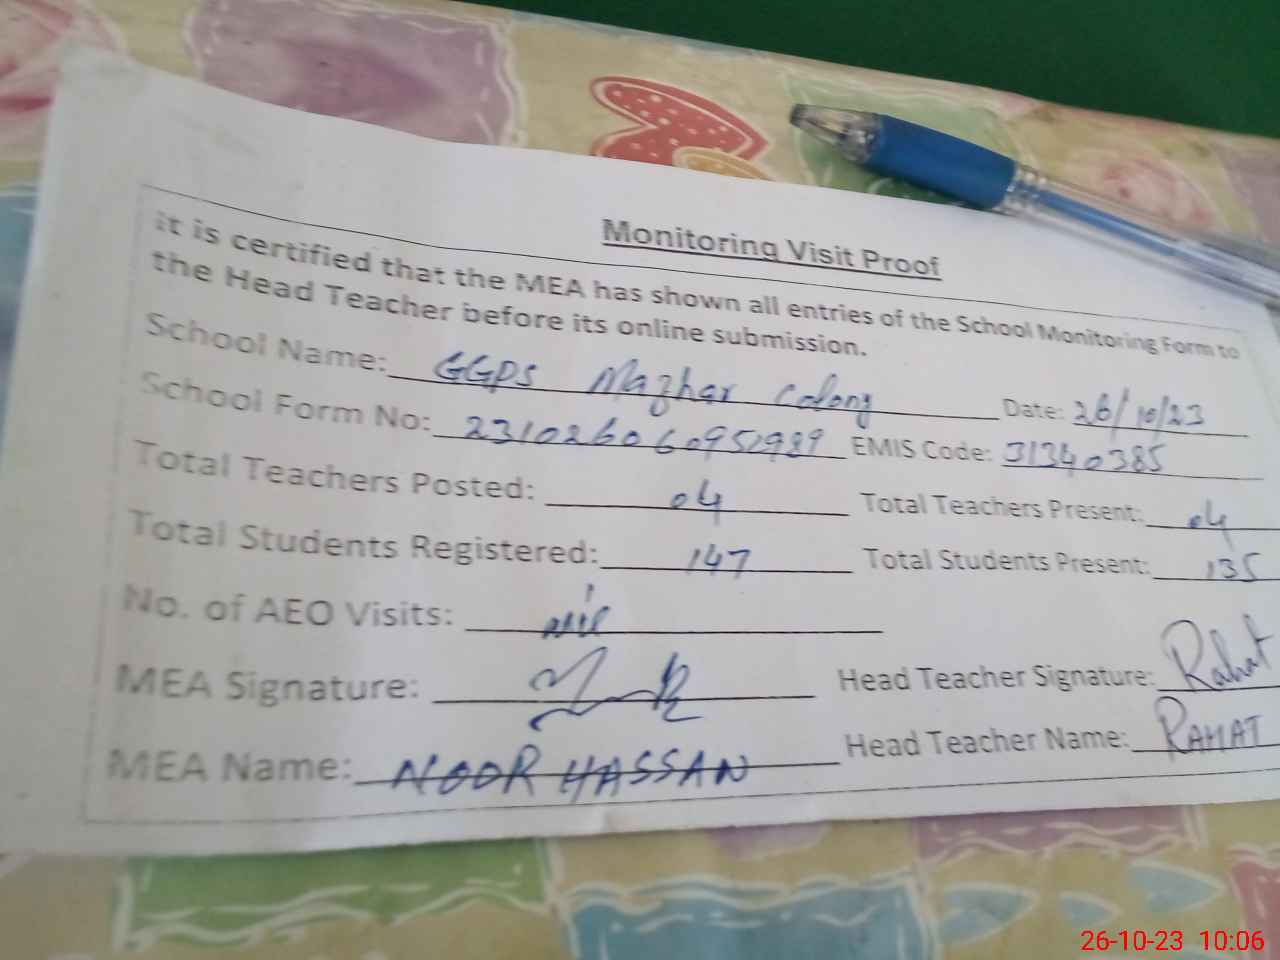 Monitoring Visit Proof
it is certified that the MEA has shown all entries of the School Monitoring Form to
the Head Teacher before its online submission.
School Name: GGPS Mazhar Colony Date: 26/10/23
School Form No: 231026060952989 EMIS Code: 31340385
Total Teachers Posted: 04 Total Teachers Present: 04
Total Students Registered: 147 Total Students Present: 135
No. of AEO Visits: nil
MEA Signature: Head Teacher Signature: Rahat
MEA Name: NOOR HASSAN Head Teacher Name: RAHAT
26-10-23 10:06